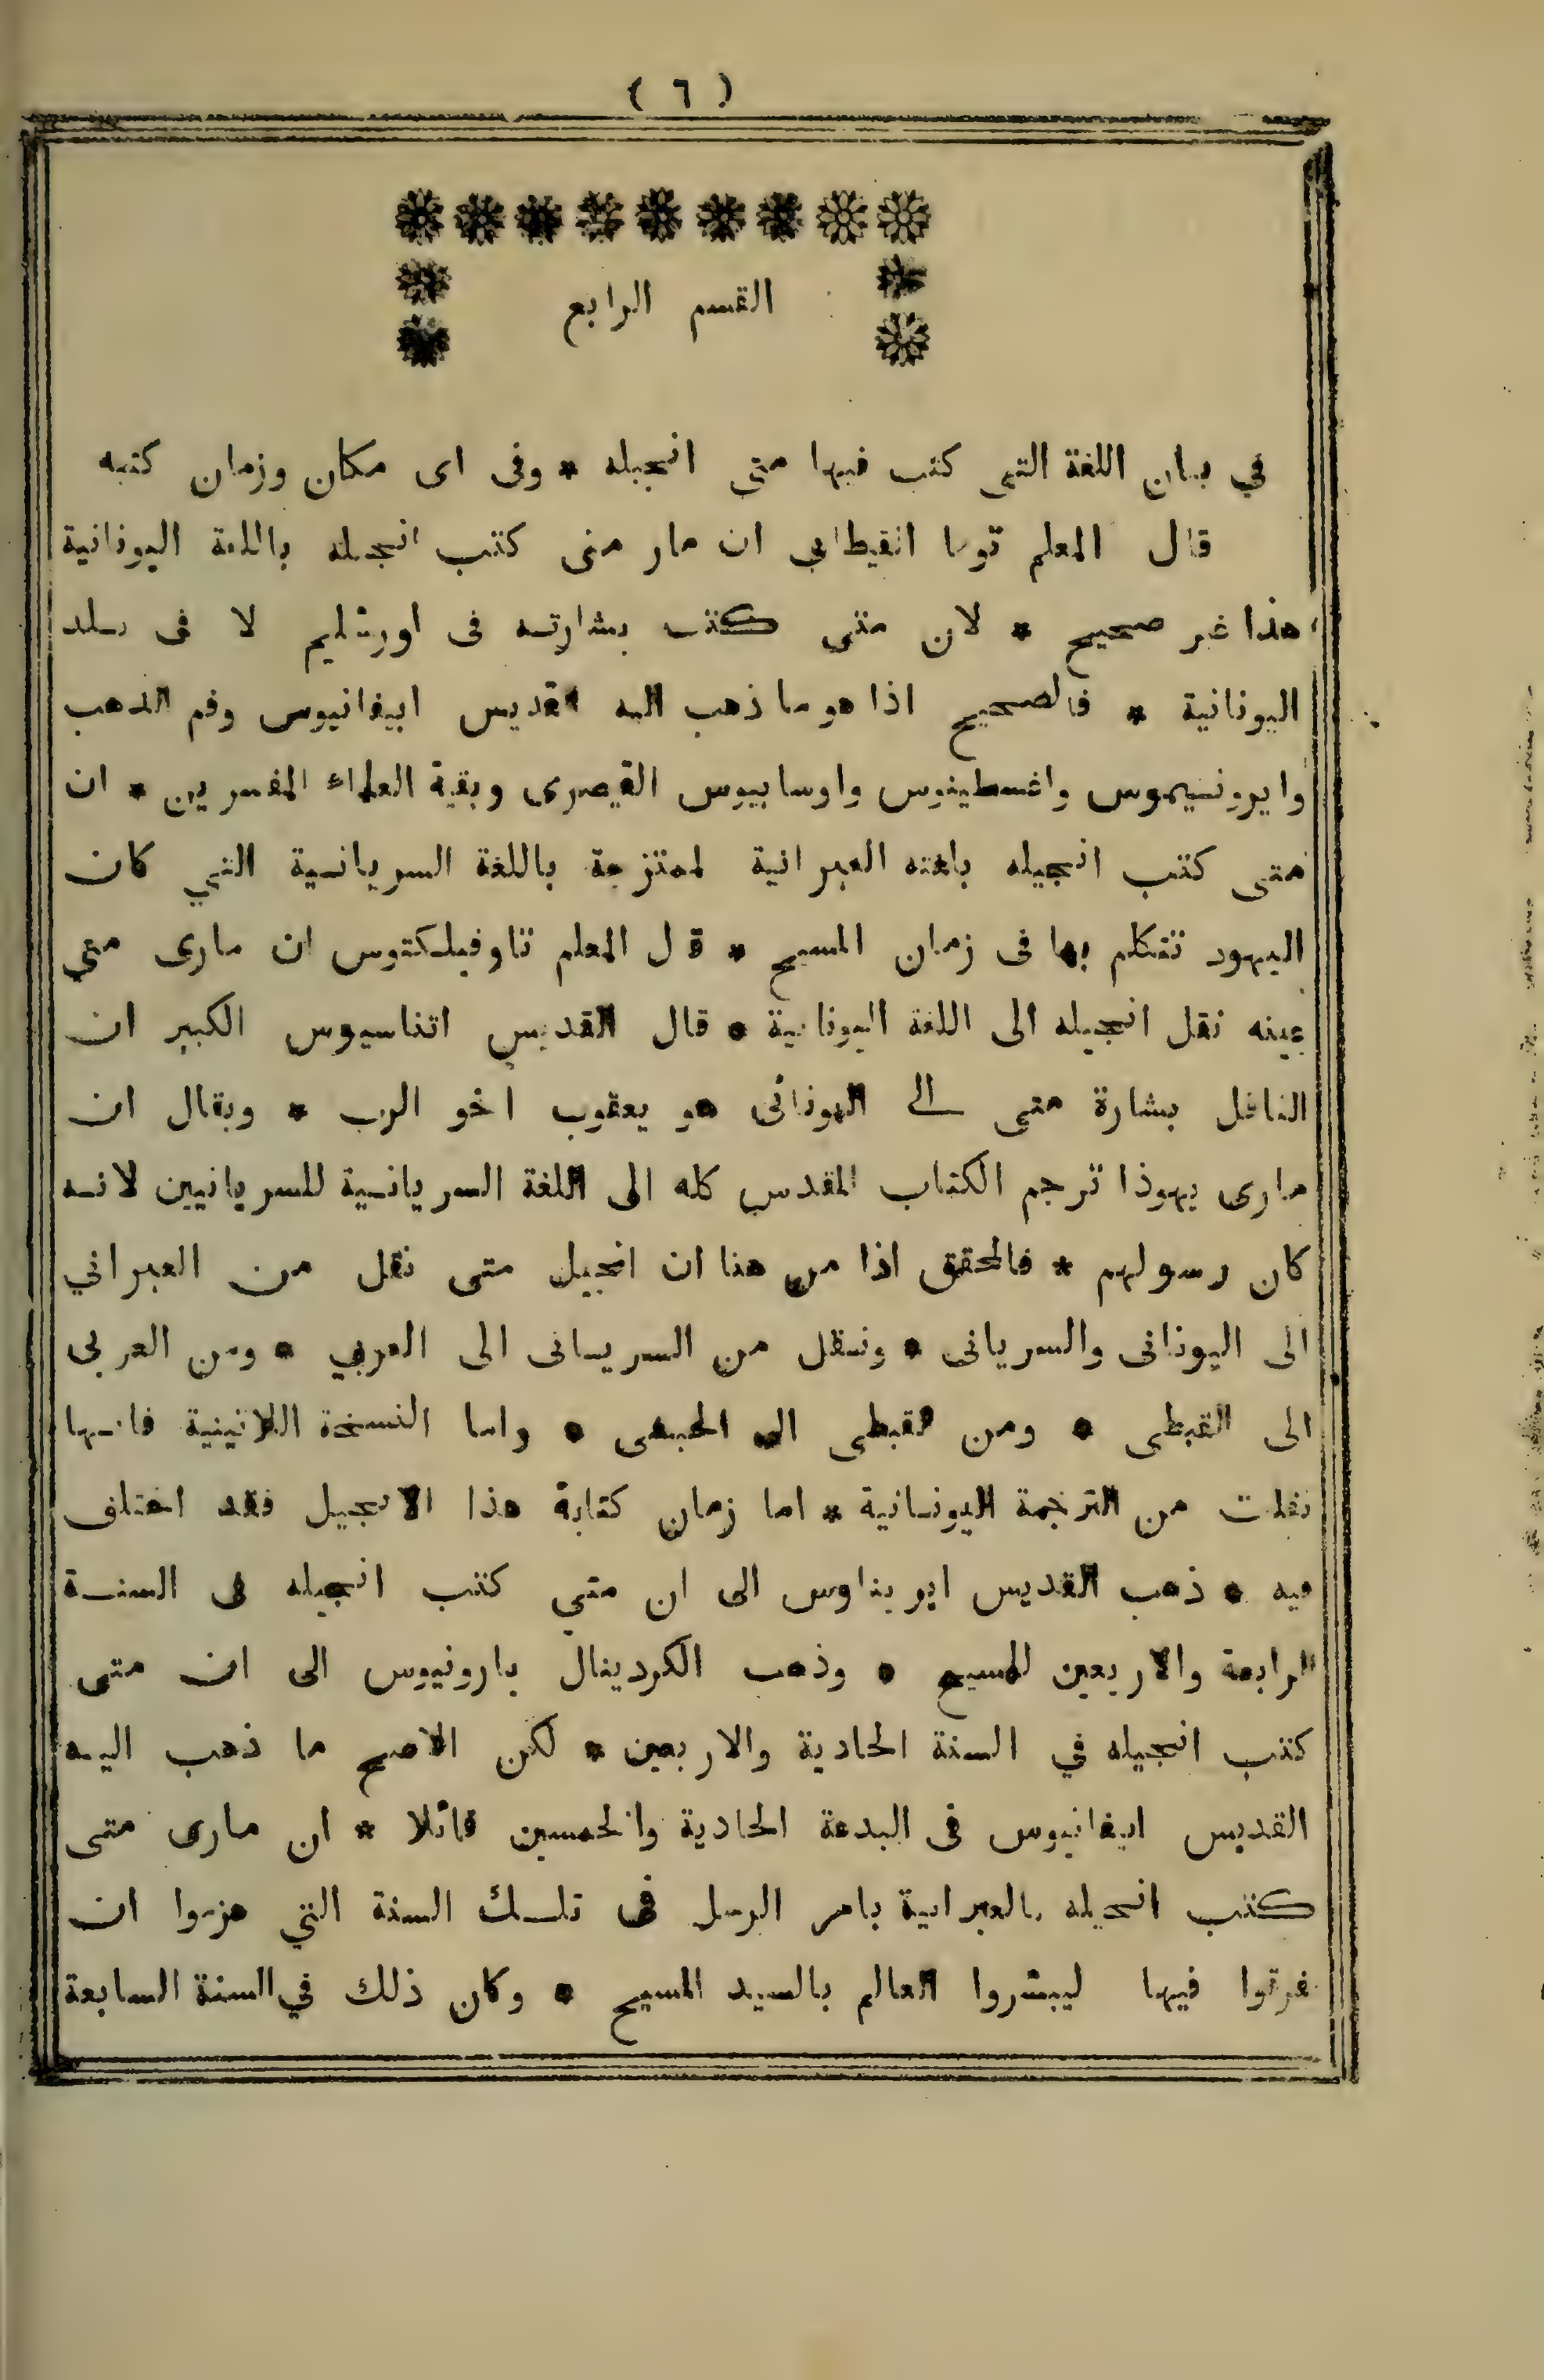 ( ٦ )
القسم الرابع
في بيان اللغة التى كتب فيها متى انجيله * وفى اى مكان وزمان كتبه
قال المعلم توما انقيطانى ان مار متى كتب انجيله باللغة اليونانية
هذا غير صحيح * لان متى كتب بشارته فى اورشليم لا فى بلد
اليونانية * فالصحيح اذا هو ما ذهب اليه القديس ابيفانيوس وفم الذهب
وايرونيموس واغسطينوس واوسابيوس القيصرى وبقية العلماء المفسرين * ان
متى كتب انجيله بلغته العبرانية الممتزجة باللغة السريانية التي كان
اليهود تتكلم بها فى زمان المسيح * قال المعلم تاوفيلكتوس ان مارى متي
عينه نقل انجيله الى اللغة اليونانية * قال القديس اتناسيوس الكبير ان
الناقل بشارة متى الى اليونانى هو يعقوب اخو الرب * ويقال ان
مارى يهوذا ترجم الكتاب المقدس كله الى اللغة السريانية للسريانيين لانه
كان رسولهم * فالمحقق اذا من هنا ان انجيل متى نقل من العبراني
الى اليونانى والسريانى * ونقل من السريانى الى العربي * ومن العربى
الى القبطى * ومن القبطى الى الحبشى * واما النسخة اللاتينية فانها
نقلت من الترجمة اليونانية * اما زمان كتابة هذا الانجيل فقد اختلف
فيه * ذهب القديس ايريناوس الى ان متي كتب انجيله فى السنة
الرابعة والاربعين للمسيح * وذهب الكردينال بارونيوس الى ان متى
كتب انجيله في السنة الحادية والاربعين * لكن الاصح ما ذهب اليه
القديس ابيفانيوس فى البدعة الحادية والخمسين قائلا * ان مارى متى
كتب انجيله بالعبرانية بامر الرسل فى تلك السنة التي عزموا ان
يفرقوا فيها ليبشروا العالم بالسيد المسيح * وكان ذلك في السنة السابعة